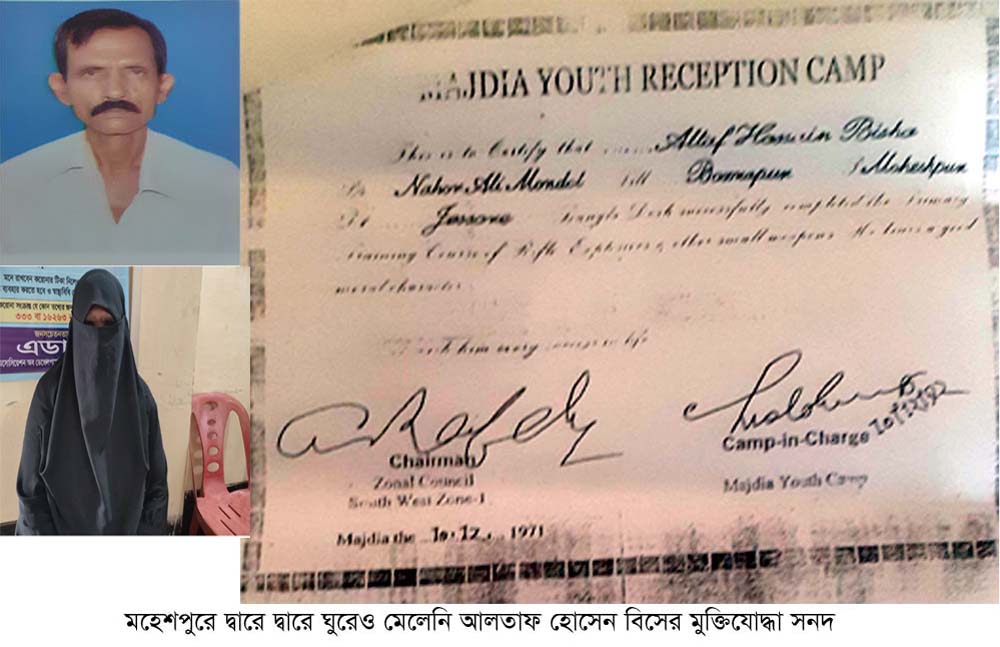 MAJDIA YOUTH RECEPTION CAMP
This is to Certify that Altaf Hossain Bisha
Nahor Ali Mondol Vill Moheshpur
Jessore Bangla Desh successfully completed the Primary
Training Course of Rifle Explosives & other small weapons. He bears a good
moral character.
him every success in life
Chairman
Zonal Council
South West Zone-1
Camp-in-Charge
Majdia Youth Camp
Majdia the 10.12. 1971
মনে রাখবেন করোনার টিকা
ব্যবহার করতে হবে ও স্বাস্থ্যবিধি
করোনা সংক্রান্ত যে কোন তথ্যের
৩৩৩ বা ১৬২৬৩
জনসচেতনতায়
এডা
মহেশপুরে দ্বারে দ্বারে ঘুরেও মেলেনি আলতাফ হোসেন বিসের মুক্তিযোদ্ধা সনদ